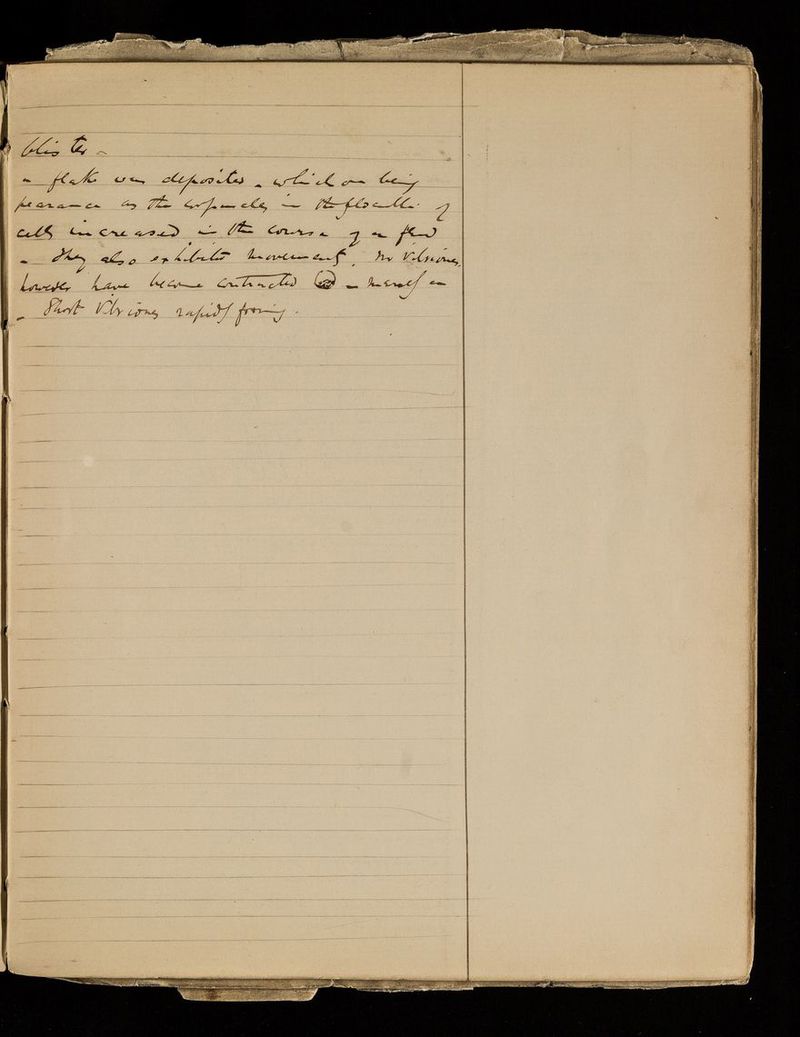 blister –
a flake was deposited – which on being
pearance as the corpuscles in the flocculi of
cells increased in the course of a few
– They also exhibited movements. No Vibriones,
however have become contracted – merely an
– Short Vibriones rapidly forming.